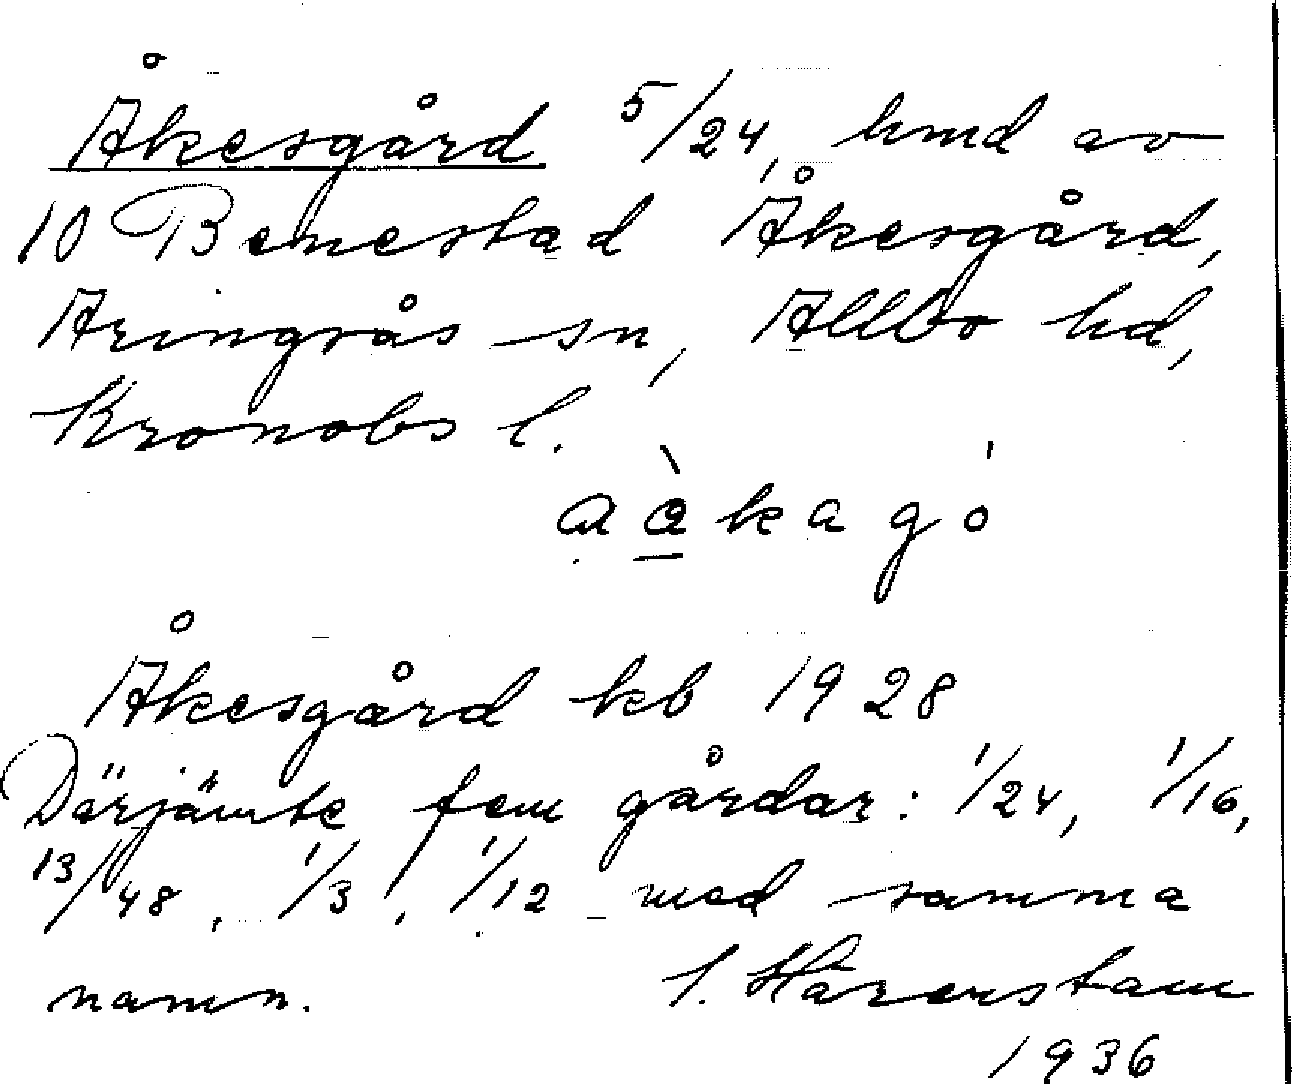 Åkesgård 5/24, hmd av
10 Benestad Åkesgård,
Aringsås sn, Allbo hd,
Kronobs l.
a à k a g ó
Åkesgård kb 1928
Därjämte fem gårdar: 1/24, 1/16,
13/48, 1/3, 1/12 med samma
namn. I. Härenstam
1936